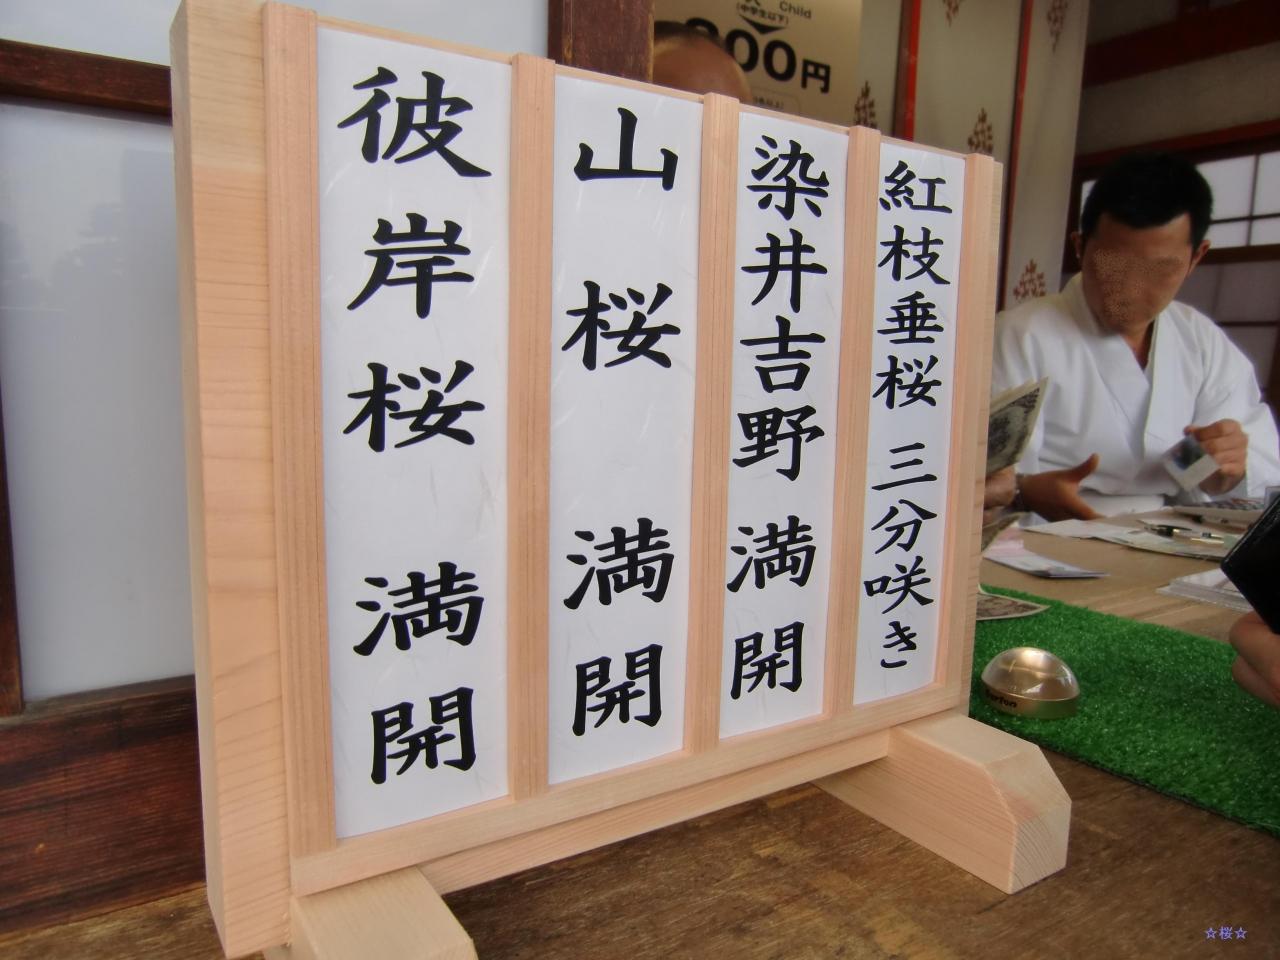 紅枝垂桜 三分咲き
染井吉野 満開
山桜 満開
彼岸桜 満開
Child
(中学生以下)
00円
☆桜☆